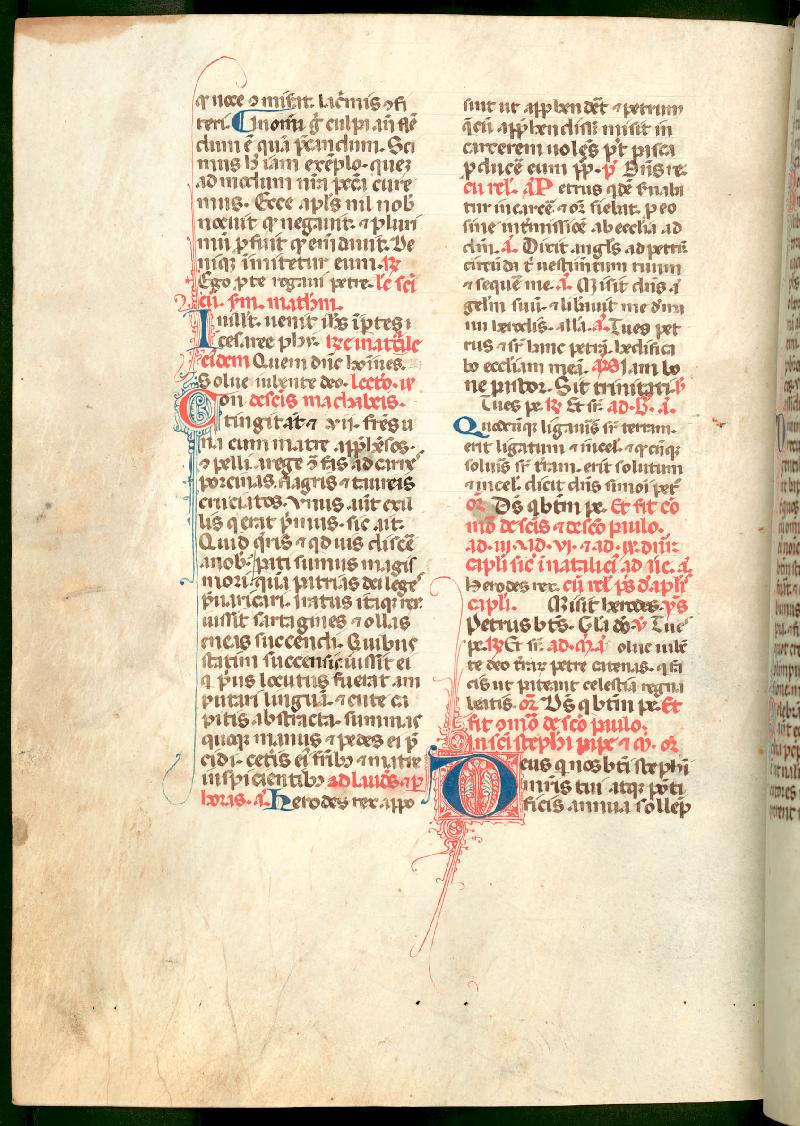 q̄ voce ꝯmisit. lac̄mis ꝯfi
teri. Quoniā ḡ culpa añ flē
dum ē quā p̄candum. Sci
mus
ad modum nr̄a pcc̄a cure
mus. Ecce apl̄s nil nob̄
nocuit q̄ negauit. ⁊ pluri
mū ꝓfuit q̄ emēdauit. De
niqȝ imitetur eum. R̄
Ego ꝓ te rogaui petre. lc̄ sci
eū. sm̄. mathm̄.
In ill̓ t̄. uenit ih̄s ī ptes
cesaree ph̄i.
eiusdem Quem dn̄t hoīnes.
Solue iubente deo. lectio. ix
de scīs machabeis.
Contingit aūt ⁊ .vii. frēs u
na cum matre app̄hēsos
ꝯpelli. a rege ꝯ fas ad carnē
porcinas. flagris ⁊ taureis
cruciatos. Vnus aūt ex il
lis q̄ erat p̄mus. sic ait.
Quid q̄ris ⁊ qd̄ uis discē
a nob̄. pati sumus magis
mori quā patrias dei leges
p̄uaricari. Iratus itaqȝ rex
iussit sartagines ⁊ ollas
eneas succendi. Quibus
statim succensis. iussit ei
q p̄us locutus fuerat am
putari linguā. ⁊ cute ca
pitis abstracta. summas
quoqȝ manus ⁊ pedes ei p̄
cidi. cet̄is ei fr̄ibȝ ⁊ matre
inspicientibȝ ad laudes ⁊ p̄
horas. a̅. Herodes rex appo
suit ut app̄hendēt ⁊ petrum
quē cū app̄hendisset misit in
carcerem uolēs pt̄ pasca
ꝓducē eum pp̄. p̄ Dn̄s re.
cū rel̓. ā. Petrus qd̄ē s̄uaba
tur in carcē ⁊ or̄ fiebat. ꝓ eo
sine int̄missiōe ab ecc̄lia ad
dm̄. ā. Dixit angl̄s ad petrū
circūda t̄ uestimtum tuum
⁊ sequē me. ā. Misit dn̄s ā
gelū suū. ⁊ libauit me d̄ ma
nu herodis. all̓a. ā. Tu es pet
rus ⁊ sr̄ hanc petrā. hedifica
bo eccl̄iam meā. Iam bo
ne pastor. Sit trinitati.
Tu es pe. R̄ Et sr̄. ad. B̄. ā.
Quodcūqȝ ligauis sr̄ terram.
erit ligatum ⁊ in cel̓. ⁊ q̄cūqȝ
soluis sr̄ trām. erit solutum
⁊ in cel̓. dicit dn̄s simoi pet̄
or̄ Ds̄ q btm̄ pe. Et fit cō
mō de scīs ⁊ de sc̄o paulo.
ad. iii. ad. vi. ⁊ ad. ix. dicūr
caplī sic̄ in natalici ad uc̄. ā.
Herodes rex. cū rel̓ ps̄ d̄ apl̄is
capli. Misit herodes. ys̄
Petrus bt̄s. Gl̄a dō. v̄ Tu es
pe. R̄ Et sr̄. ad. m̄. ā Solue iubē
te deo t̄rar̄ petre catenas. q̄ fa
cis ut pateant celestia regna
beatis. or̄ Ds̄ q btm̄ pe. Et
fit ꝯmō de sc̄o paulo.
In sc̄i stephi pape ⁊ m̄. or̄
Deus q nos bt̄i stephi
mr̄is tui atqȝ pōti
ficis annua sollēp